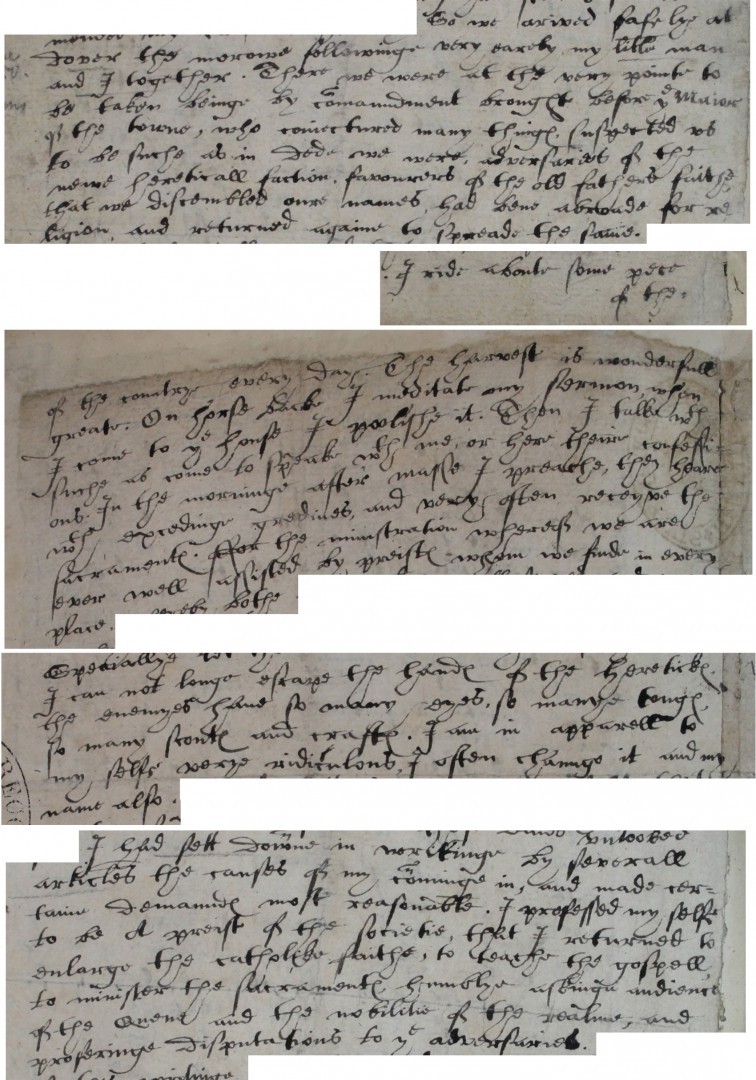 So we arived safelye at
dover the morowe followinge very earely my litle man
and I together. There we were at the very pointe to
be taken beinge by cōmaundment brought before yᵉ Maior
of the towne, who coniectured many things, suspected us
to be suche as in dede we were, adversaries of the
newe hereticall faction, favourers of the old fathers faithe,
that we dissembled oure names, had bene abroade for re
ligion, and returned againe to spreade the same.
I ride aboute some pece
of the
of the countrye every day. The harvest is wonderfull
greate. On horse backe I meditate my sermon, when
I come to yᵉ house I polishe it. Then I talke wᵗʰ
suche as come to speake wᵗʰ me, or here theire confessi-
ons. In the morninge after masse I preache, they heare
wᵗʰ excedinge gredines, and very often receyve the
sacraments. ffor the ministration whereof we are
ever well assisted by preists whom we finde in every
place. bothe
Speciallye
I can not longe escape the hands of the hereticks
the enemyes have so many eyes, so manye tongs,
so many scouts and crafts. I am in apparell to
my selfe verye ridiculous, I often chaunge it and my
name also.
unlooked
I had sett downe in writinge by severall
articles the causes of my cōminge in, and made cer=
taine demaunds most reasonable. I professed my selfe
to be A preist of the societie, that I returned to
enlarge the catholike faithe, to teache the gospell,
to minister the sacraments humblye askinge audience
of the Quene and the nobilitie of the realme, and
proferinge disputations to yᵉ adversaries.